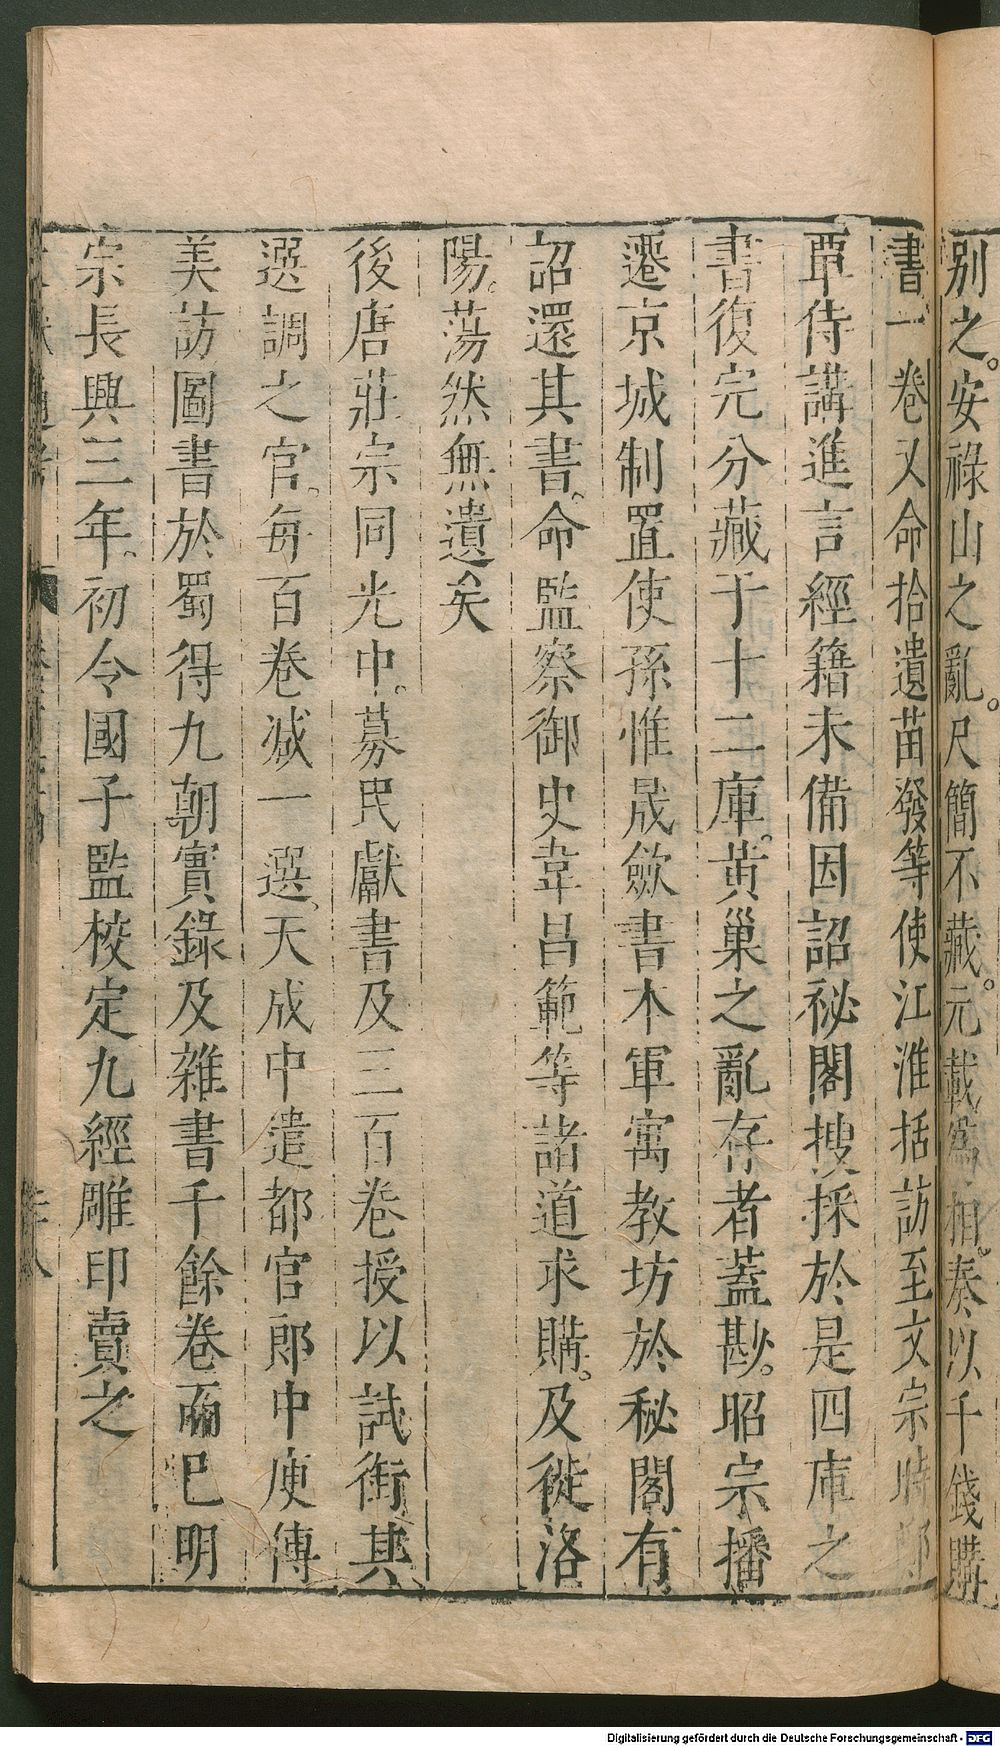 別之。安祿山之亂。尺簡不藏。元載為相。奏以千錢購
書一卷又命拾遺苗發等使江淮括訪至文宗時鄭
覃侍講進言經籍未備因詔祕閣搜採於是四庫之
書復完分藏于十二庫。黃巢之亂存者蓋尠。昭宗播
遷京城制置使孫惟晟斂書本軍寓教坊於秘閣有
詔還其書。命監察御史韋昌範等諸道求購。及徙洛
陽。蕩然無遺矣
後唐莊宗同光中。募民獻書及三百卷授以試銜其
選調之官。每百卷減一選。天成中遣都官郎中庾傳
美訪圖書於蜀得九朝實錄及雜書千餘卷而巳明
宗長興三年。初令國子監校定九經雕印賣之
Digitalisierung gefördert durch die Deutsche Forschungsgemeinschaft - DFG